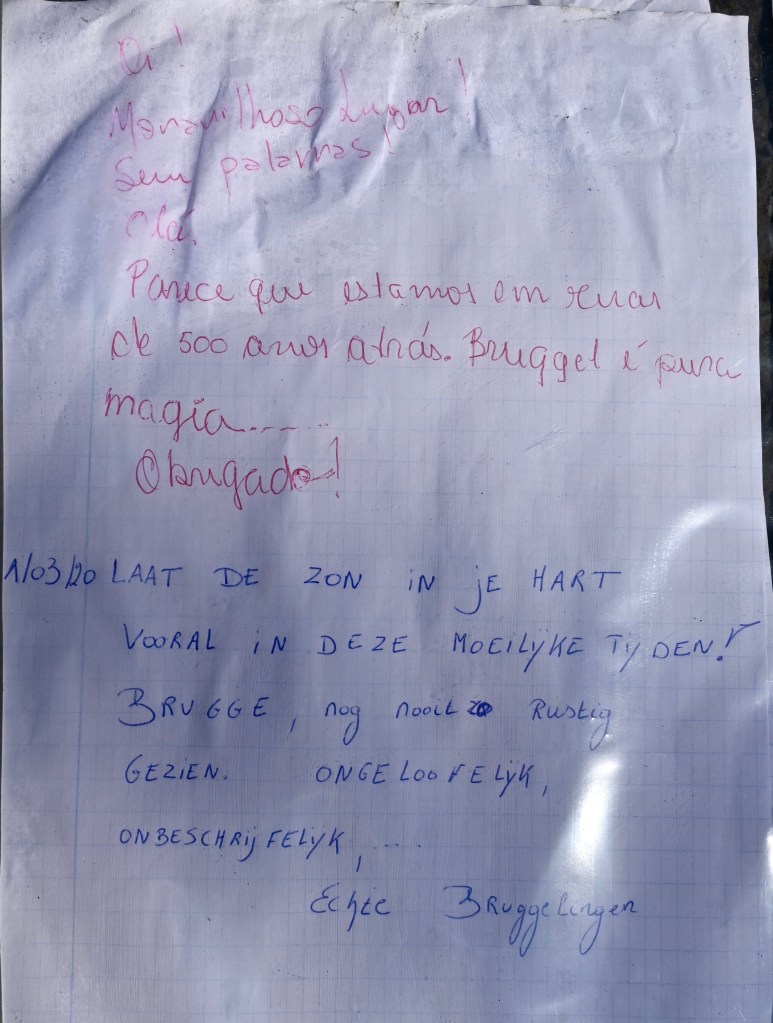 Oi !
Maravilhoso Lugar !
Sem palavras !
Olá,
Parece que estamos em ruas
de 500 anos atrás. Bruggel é pura
magia.......
Obrigado !
1/03/20 LAAT DE ZON iN jE HART
VOORAL iN DEZE MOEILIJKE TIJDEN!
BRUGGE, nog nooit zo Rustig
GEZIEN. ONGELOOFELIJK,
ONBESCHRIJFELIJK, ....
Echte Bruggelingen